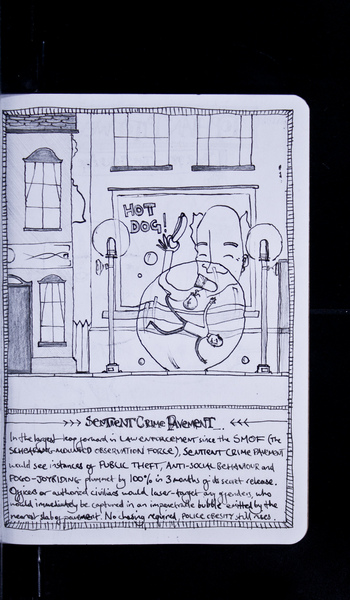 HOT
DOG!
>>> SENTIENT CRIME PAVEMENT... <<<
In the largest leap forward in LAW ENFORCEMENT since the SMOF (the
SEAHORSE-MOUNTED OBSERVATION FORCE), SENTIENT CRIME PAVEMENT
would see instances of PUBLIC THEFT, ANTI-SOCIAL BEHAVIOUR and
POGO-JOYRIDING plummet by 100% in 3 months of its secret release.
Officers or authorized civilians would laser-target any offenders, who
would immediately be captured in an impenetrable bubble emitted by the
nearest slab of pavement. No chasing required, POLICE OBESITY still rises.